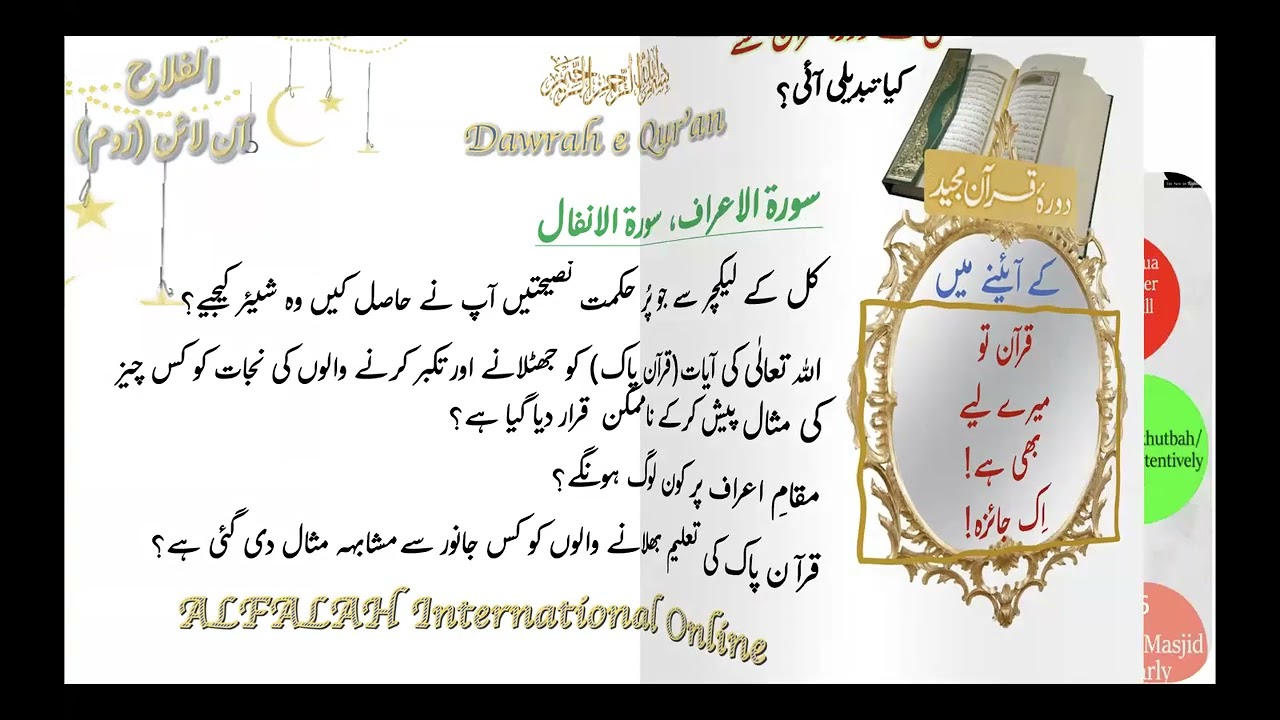 الفلاح
آن لائن (زوم)
بسم اللہ الرحمن الرحیم
Dawrah e Qur'an
کیا تبدیلی آئی؟
سورۃ الاعراف، سورۃ الانفال
کل کے لیکچر سے جو پُر حکمت نصیحتیں آپ نے حاصل کیں وہ شیئر کیجیے؟
اللہ تعالٰی کی آیات (قرآن پاک) کو جھٹلانے اور تکبر کرنے والوں کی نجات کو کس چیز
کی مثال پیش کرکے ناممکن قرار دیا گیا ہے؟
مقامِ اعراف پر کون لوگ ہونگے؟
قرآن پاک کی تعلیم بھلانے والوں کو کس جانور سے مشابہہ مثال دی گئی ہے؟
ALFALAH International Online
دورۂ قرآن مجید
کے آئینے میں
قرآن تو
میرے لیے
بھی ہے!
اِک جائزہ!
hutbah/
tentively
Masjid
rly